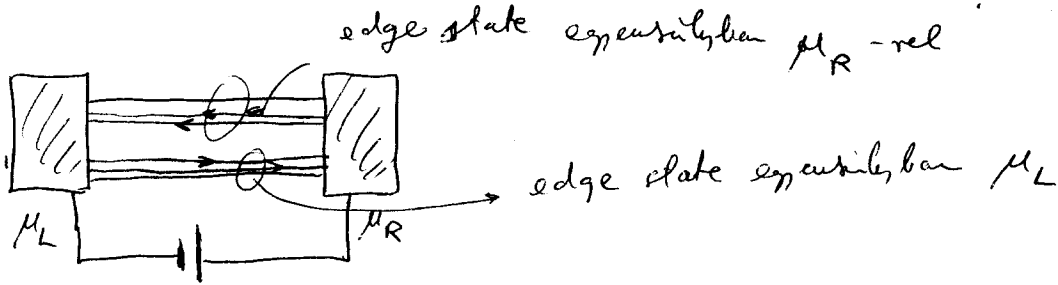 edge state egyensúlyban μ_R -rel
edge state egyensúlyban μ_L
μ_L
μ_R